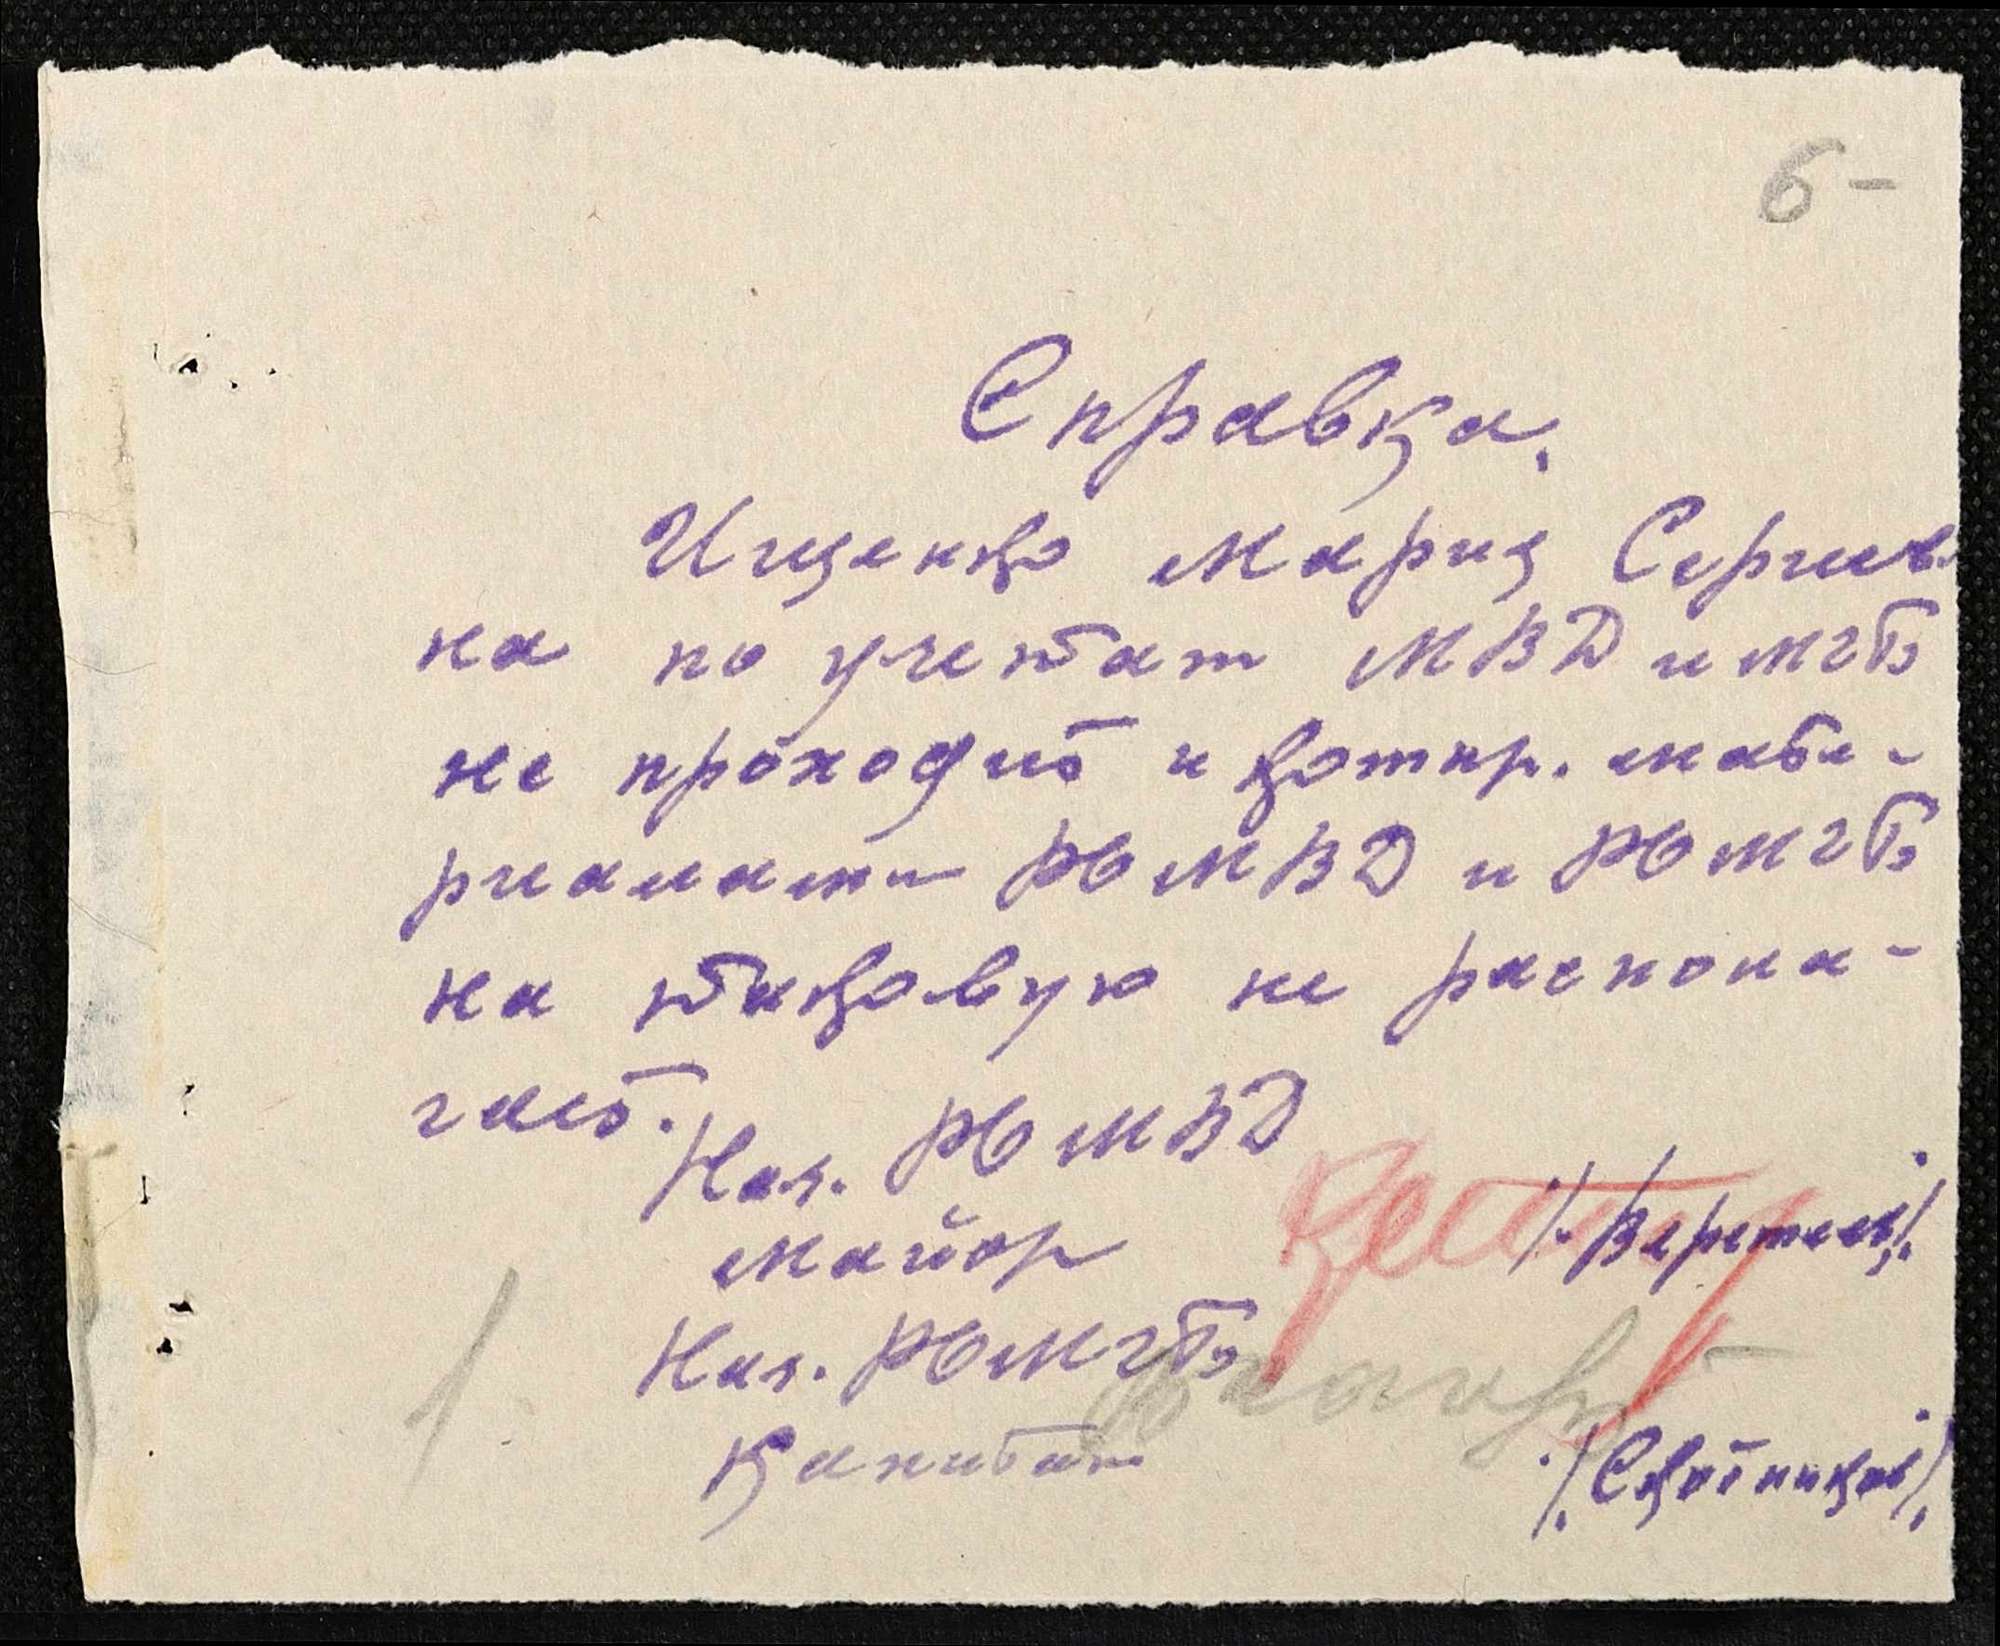 6-
Справка.
Ищенко Мария Сергеев
на по учетам МВД и МГБ
не проходит и компр. мате-
риалами РОМВД и РОМГБ
на таковую не распола-
гает.
Нач. РОМВД
майор
Нач. РОМГБ
Капитан